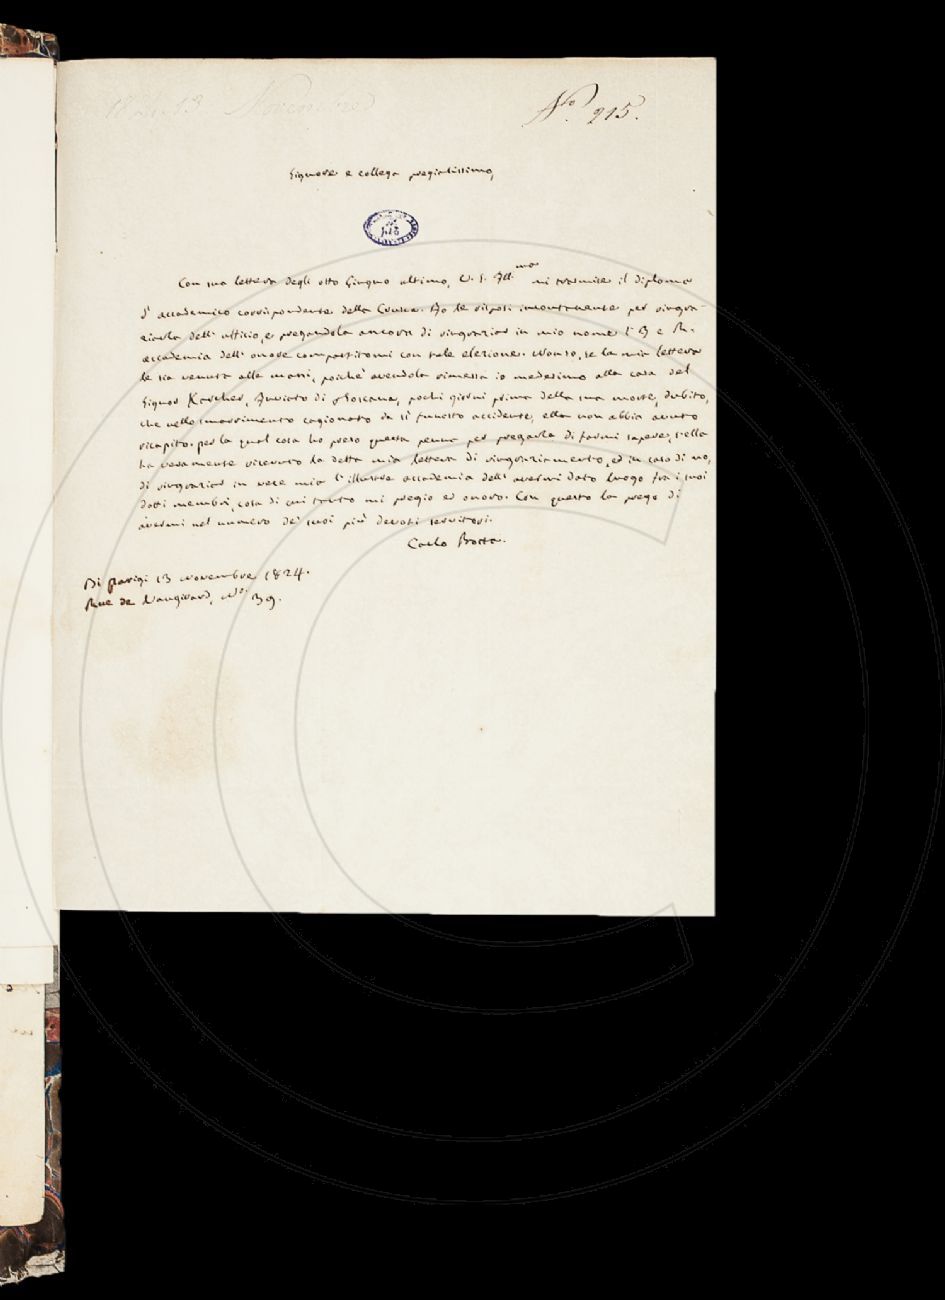 1824. 13 Novembre
N.ro 215.
Signore e collega pregiatissimo,
Con sua lettera degli otto Giugno ultimo, V. S. Ill.ma mi trasmise il diploma
d'accademico corrispondente della Crusca. Io le risposi incontanente per ringra-
ziarla dell'ufficio, e pregandola ancora di ringraziar in mio nome l'I e R.
accademia dell'onore compartitomi con tale elezione. Non so, se la mia lettera
le sia venuta alle mani, poichè avendola rimessa io medesimo alla casa del
Signor Karcher, Inviato di Toscana, pochi giorni prima della sua morte, dubito,
che nello smarrimento cagionato da sì funesto accidente, ella non abbia avuto
ricapito. per la qual cosa ho preso questa penna per pregarla di farmi sapere, s'ella
ha veramente ricevuto la detta mia lettera di ringraziamento, ed in caso di no,
di ringraziar in vece mia l'illustre accademia dell'avermi dato luogo fra i suoi
dotti membri, cosa di cui tanto mi pregio ed onoro. Con questo la prego di
avermi nel numero de' suoi più devoti servitori.
Carlo Botta.
Di Parigi 13 Novembre 1824.
Rue de Vaugirard, N.o 39.